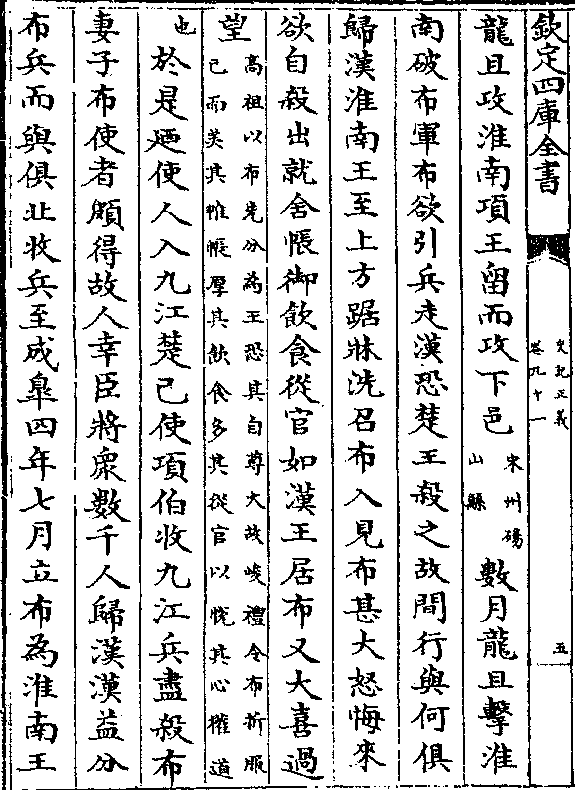 欽定四庫全書
史記正義
卷九十一
五
龍且攻淮南項王留而攻下邑宋州碭山縣數月龍且擊淮
南破布軍布欲引兵走漢恐楚王殺之故間行與何俱
歸漢淮南王至上方踞牀洗召布入見布甚大怒悔來
欲自殺出就舍帳御飲食從官如漢王居布又大喜過
望高祖以布先分為王恐其自尊大故峻禮令布折服
已而美其帷帳厚其飲食多其從官以悅其心權道
也於是廼使人入九江楚已使項伯收九江兵盡殺布
妻子布使者頗得故人幸臣將衆數千人歸漢漢益分
布兵而與俱北收兵至成臯四年七月立布為淮南王